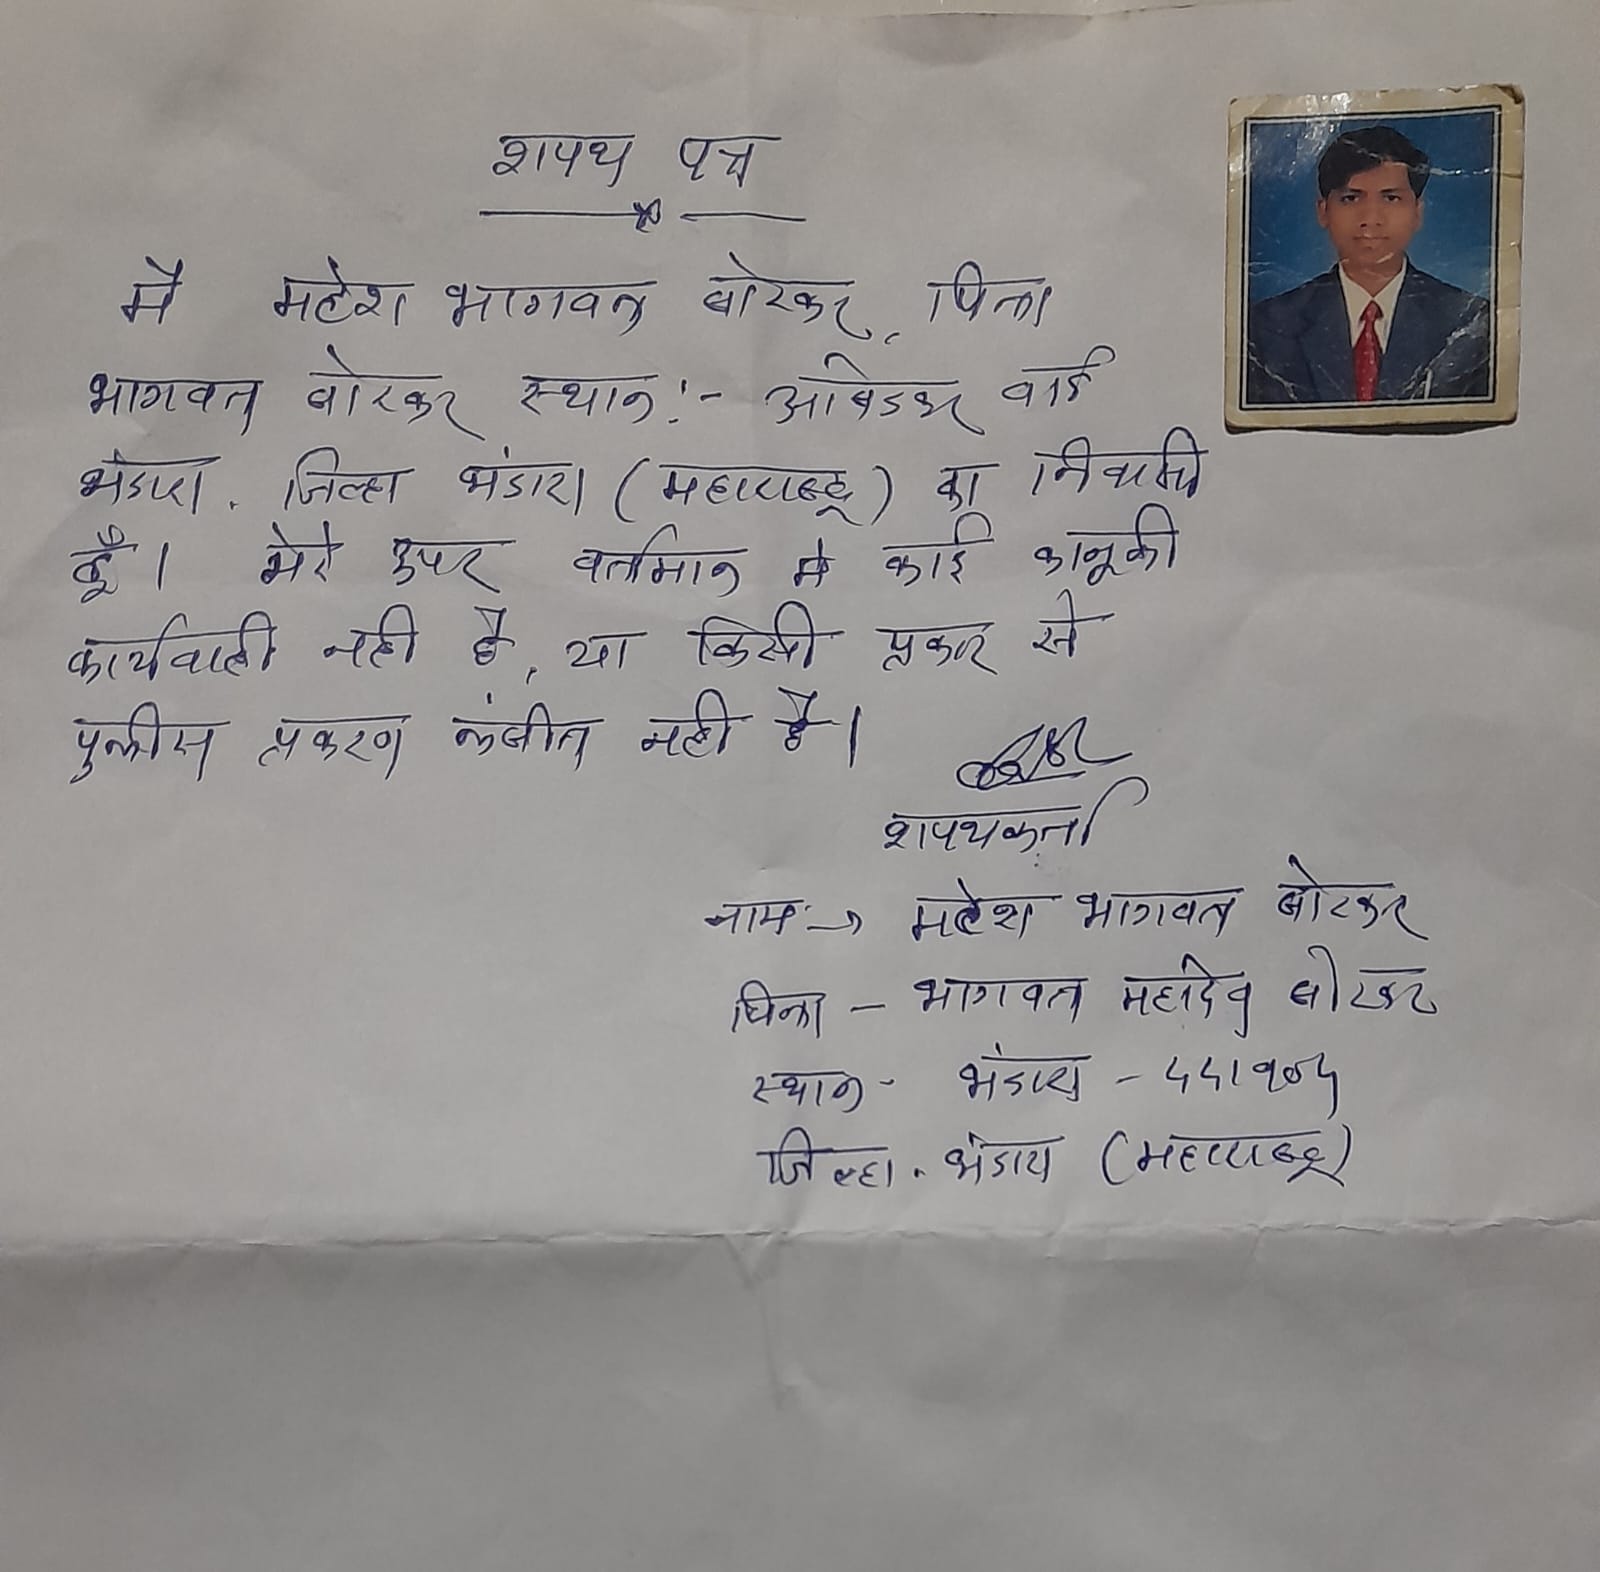 शपथ पत्र
मै महेश भागवत बोरकर, पिता
भागवत बोरकर स्थान :- आंबेडकर वार्ड
भंडारा. जिल्हा भंडारा (महाराष्ट्र) का निवासी
हूँ। मेरे उपर वर्तमान मे कोई कानूनी
कार्यवाही नही है, या किसी प्रकार से
पुलीस प्रकरण लंबीत नही है।
शपथकर्ता
नाम :→ महेश भागवत बोरकर
पिता - भागवत महादेव बोरकर
स्थान - भंडारा - ४४१९०४
जिल्हा. भंडारा (महाराष्ट्र)